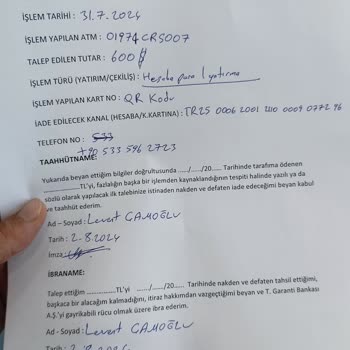 İŞLEM TARİHİ : 31.7.2024
İŞLEM YAPILAN ATM : 01974CRS007
TALEP EDİLEN TUTAR : 600 ₺
İŞLEM TÜRÜ (YATIRIM/ÇEKİLİŞ) : Hesaba para yatırma
İŞLEM YAPILAN KART NO : QR Kodu
İADE EDİLECEK KANAL (HESABA/K.KARTINA) : TR25 0006 2001 0009 0772 96
TELEFON NO : 533
+90 533 596 2723
TAAHHÜTNAME:
Yukarıda beyan ettiğim bilgiler doğrultusunda ...../...../20..... Tarihinde tarafıma ödenen
.....................TL'yi, fazlalığın başka bir işlemden kaynaklandığının tespiti halinde yazılı ya da
sözlü olarak yapılacak ilk talebinize istinaden nakden ve defaten iade edeceğimi beyan kabul
ve taahhüt ederim.
Ad – Soyad : Levent CAMOĞLU
Tarih : 2.8.2024
İmza
İBRANAME:
Talep ettiğim ................TL'yi ...../...../20..... Tarihinde nakden ve defaten tahsil ettiğimi,
başkaca bir alacağım kalmadığını, itiraz hakkımdan vazgeçtiğimi beyan ve T. Garanti Bankası
A.Ş.'yi gayrikabili rücu olmak üzere ibra ederim.
Ad - Soyad : Levent CAMOĞLU
Tarih :